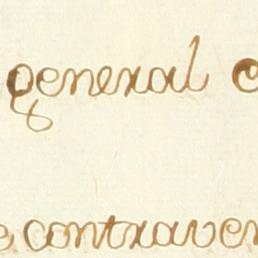 general
contraven